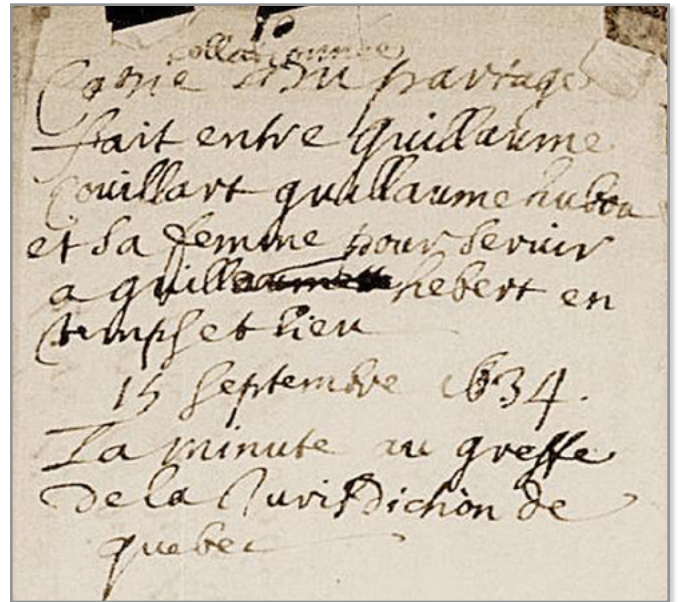 collationnée
Copie d'un partage
fait entre guillaume
Couillart guillaume hubou
et sa femme pour servir
a guillaume hebert en
temps et lieu
15 septembre 1634.
La minute au greffe
de la Jurisdiction de
quebec